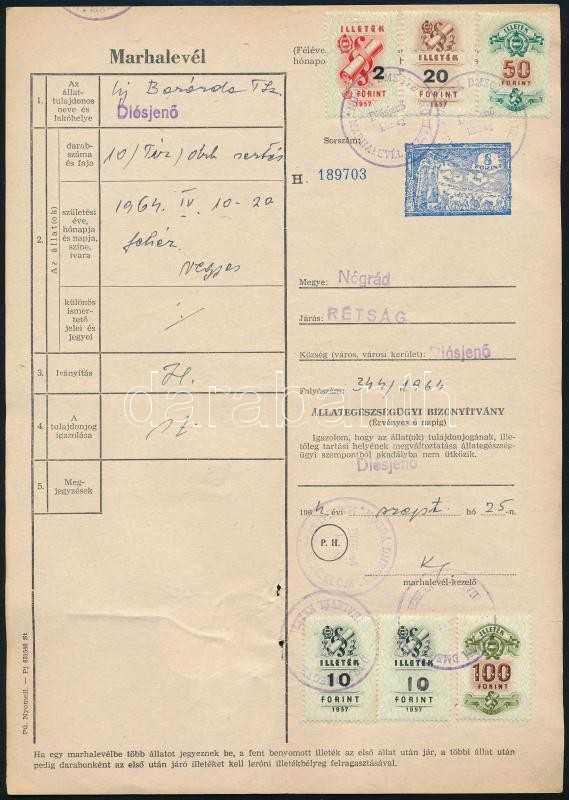 Marhalevél
(Féléve
hónapo
ILLETÉK
2
FORINT
1957
ILLETÉK
20
FORINT
1957
ILLETÉK
50
FORINT
1.
Az állat-
tulajdonos
neve és
lakóhelye
Diósjenő
2.
Az állat(ok)
darab-
száma
és faja
10/Tíz/drb sertés
születési
éve,
hónapja
és napja,
színe,
ivara
1964. IV. 10-20
fehér
vegyes
különös
ismer-
tető
jelei és
jegyei
3.
Irányítás
4.
A
tulajdonjog
igazolása
5.
Meg-
jegyzések
Sorszám:
H. 189703
8
FORINT
Megye: Nógrád
Járás: RÉTSÁG
Község (város, városi kerület): Diósjenő
Folyószám: 344/1964
ÁLLATEGÉSZSÉGÜGYI BIZONYÍTVÁNY
(Érvényes 6 napig)
Igazolom, hogy az állat(ok) tulajdonjogának, ille-
tőleg tartási helyének megváltoztatása állategészség-
ügyi szempontból akadályba nem ütközik.
Diósjenő
1964. évi szept. hó 25-n.
P. H.
marhalevél-kezelő
ILLETÉK
10
FORINT
1957
ILLETÉK
10
FORINT
1957
ILLETÉK
100
FORINT
Pü. Nyomell. — Pj
Ha egy marhalevélbe több állatot jegyeznek be, a fent benyomott illeték az első állat után jár, a többi állat után
pedig darabonként az első után járó illetéket kell leróni illetékbélyeg felragasztásával.
darabanth